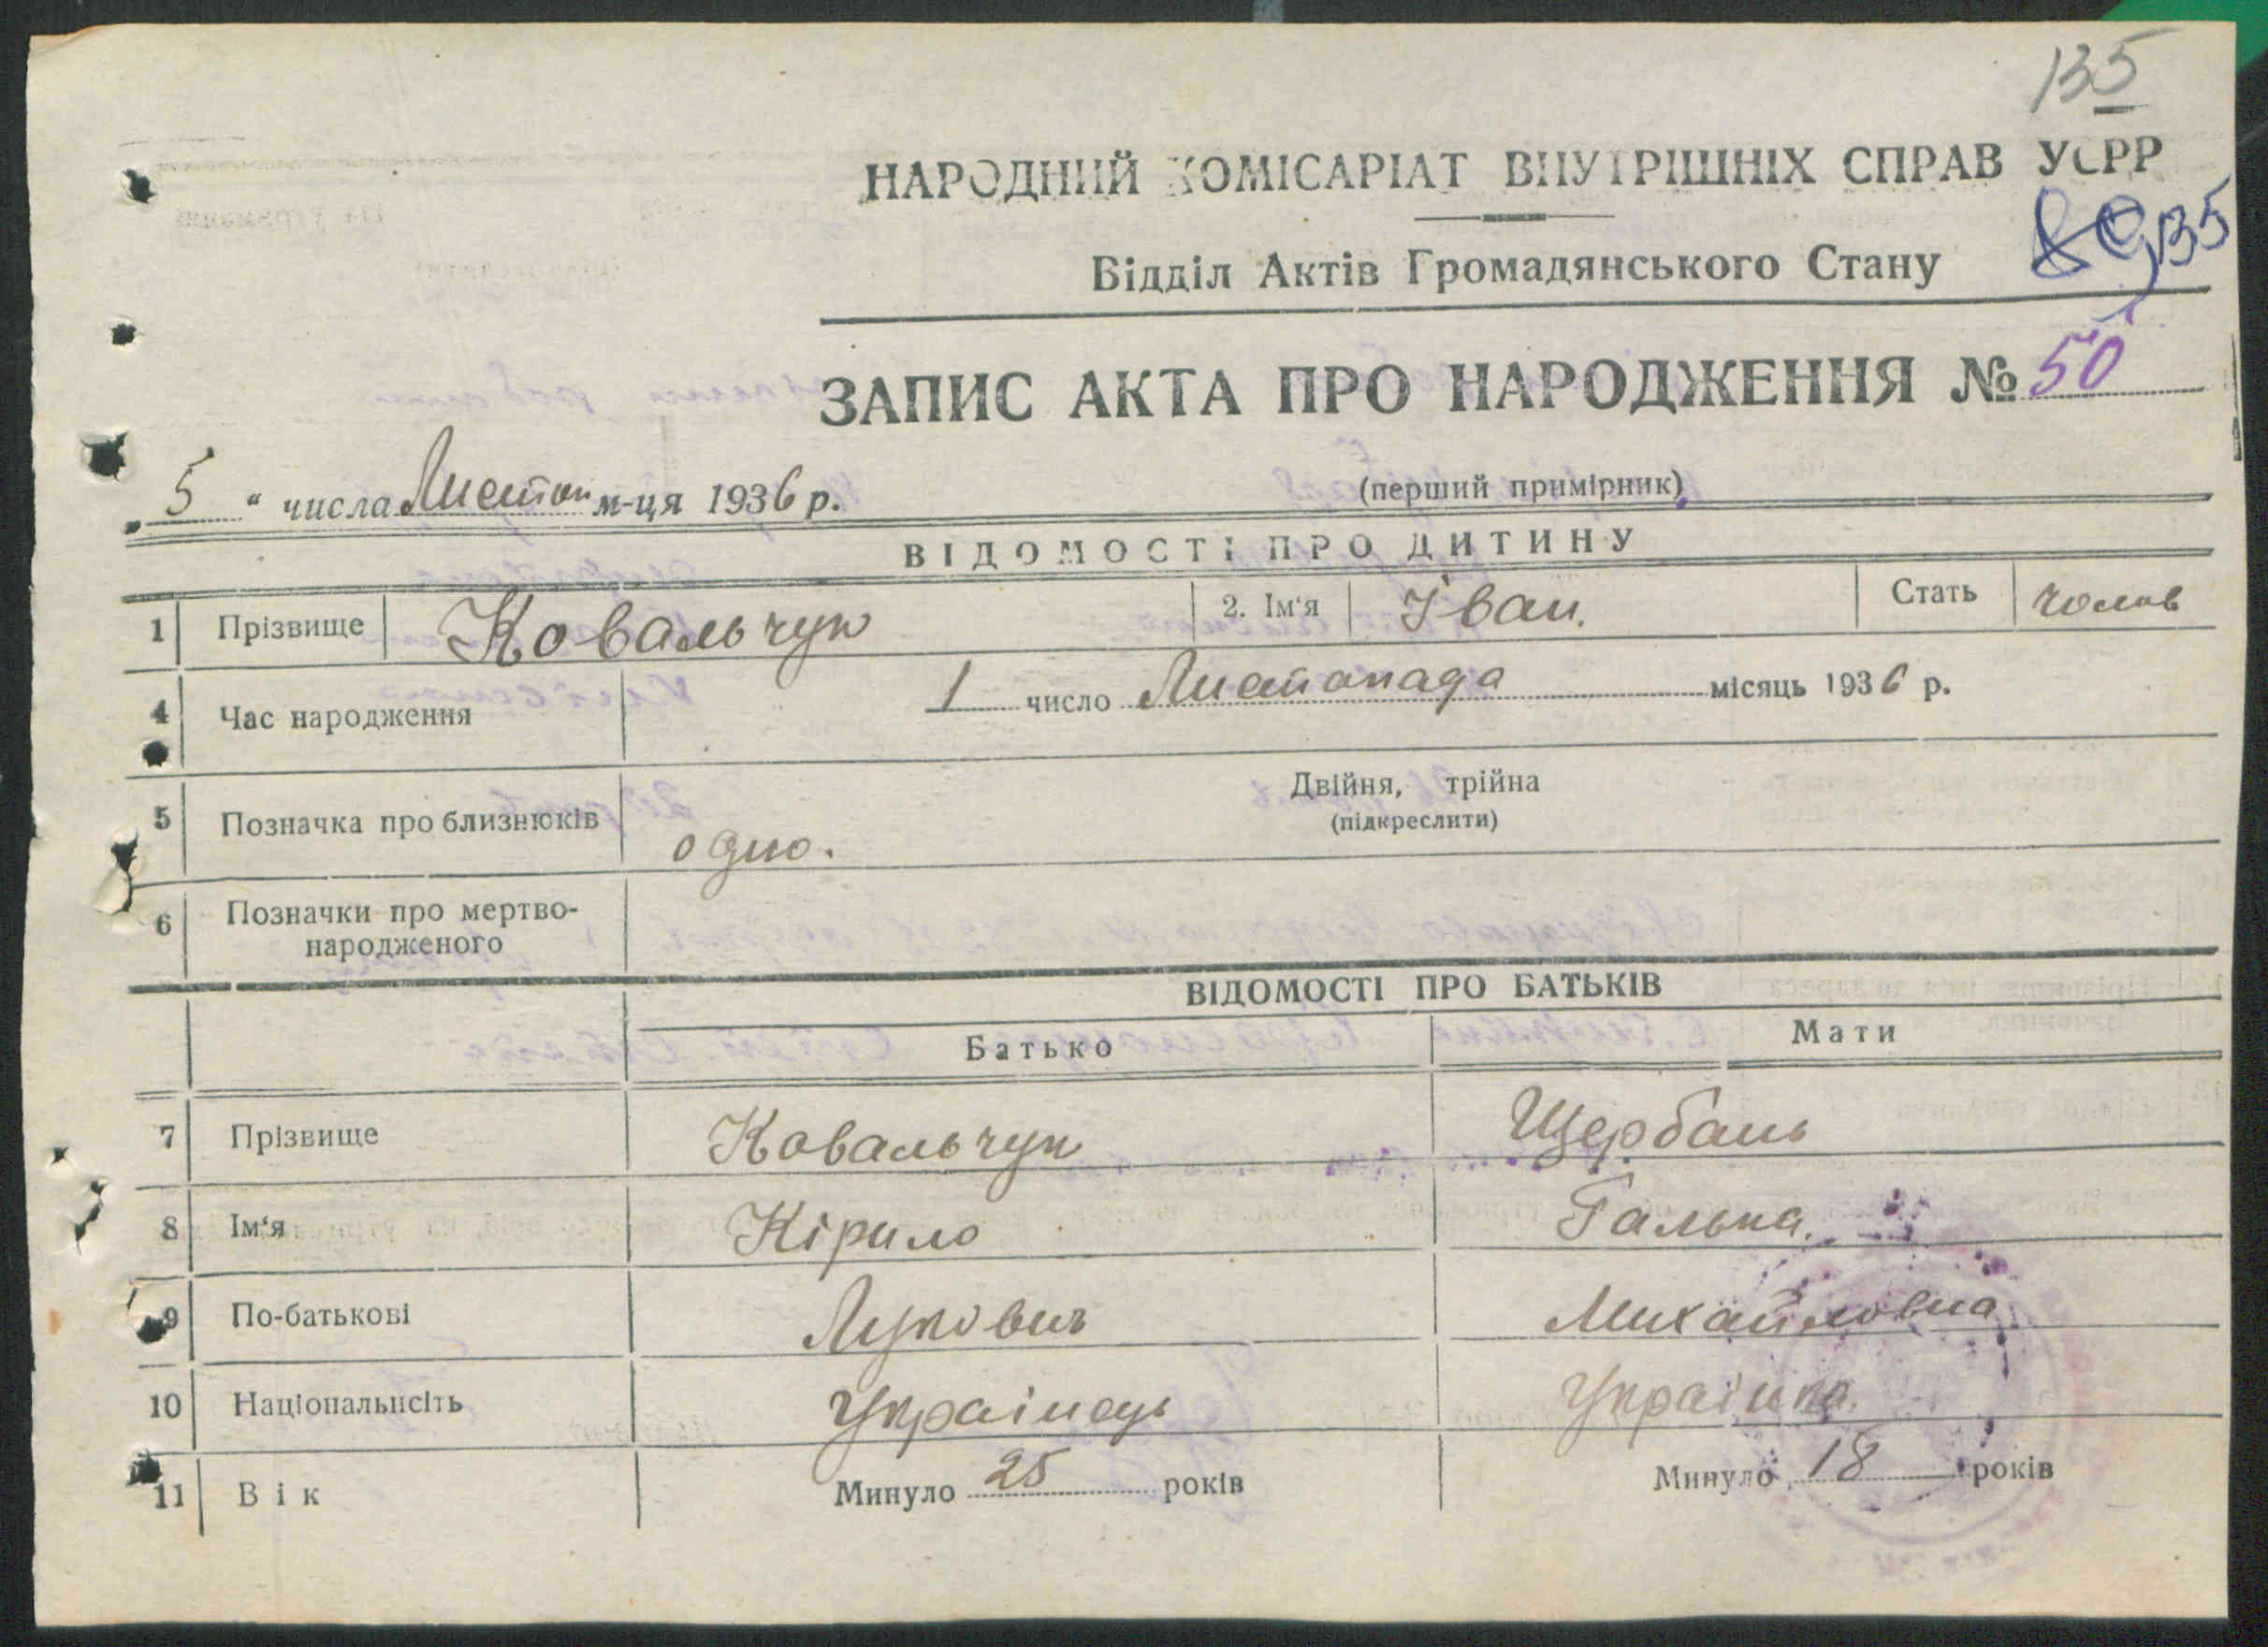 135
НАРОДНИЙ КОМІСАРІАТ ВНУТРІШНІХ СПРАВ УСРР
135
Відділ Актів Громадянського Стану
ЗАПИС АКТА ПРО НАРОДЖЕННЯ № 50
„ 5 “ числа Листоп м-ця 1936 р.
(перший примірник)
ВІДОМОСТІ ПРО ДИТИНУ
1 Прізвище Ковальчук 2. Ім‘я Іван. Стать чолов
4 Час народження 1 число Листопада місяць 1936 р.
Двійня, трійна
5 Позначка про близнюків (підкреслити)
одно.
6 Позначки про мертво-
народженого
ВІДОМОСТІ ПРО БАТЬКІВ
Батько Мати
7 Прізвище Ковальчук Щербань
8 Ім‘я Кірило Галька.
9 По-батькові Лукович Михайловна
10 Національнсіть Українець Українка.
11 Вік Минуло 25 років Минуло 18 років